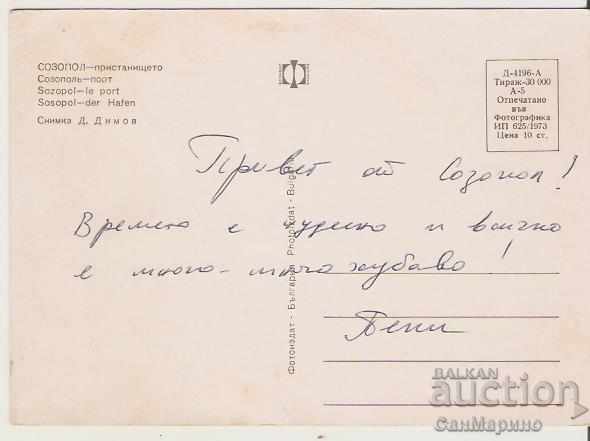 СОЗОПОЛ—пристанището
Созополь—порт
Sozopol—le port
Sosopol—der Hafen
Снимка Д. Димов
Д-4196-А
Тираж-30 000
А-5
Отпечатано
във
Фотографика
ИП 625/1973
Цена 10 ст.
Привет от Созопол!
Времето е чудесно и всичко
е много-много хубаво!
Пепи
Фотоиздат - България Photoizdat - Bulg
BALKAN
auction
СанМарино